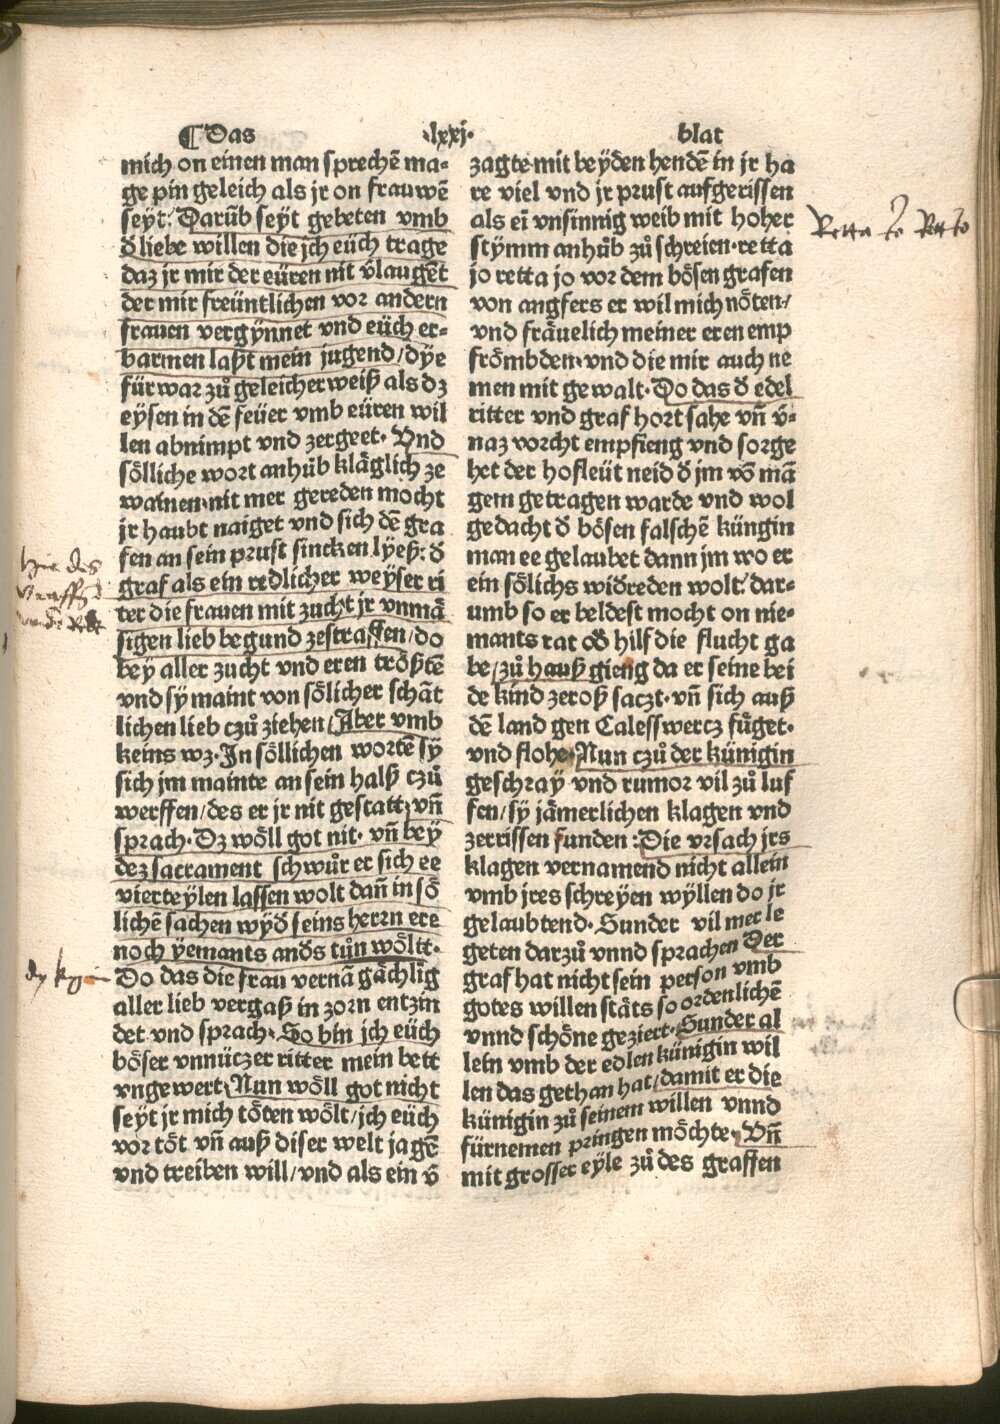 ¶Das .lxxj. blat
mich on einen man sprechē ma⸗
ge pin geleich als jr on frauwē
seyt. Darūb seyt gebeten vmb
ď liebe willen die jch eüch trage
daz jr mir der eüren nit v̄laugēt
der mir freüntlichen vor andern
frauen vergÿnnet vnd eüch er⸗
barmen laßt mein jugend/dÿe
fürwar zů geleicher weiß als dz
eysen in dē feüer vmb eüren wil
len abnimpt vnd zergeet. Vnd
sölliche wort anhůb kläglich ze
wainen.nit mer gereden mocht
jr haubt naiget vnd sich dē gra
fen an sein prust sincken lÿeß: ď
graf als ein redlicher weyser ri
ter die frauen mit zucht jr vnmā
sigen lieb begund zestraffen/do
bey aller zucht vnd eren tröstē
vnd sÿ maint von sölicher schāt
lichen lieb czů ziehen/Aber vmb
keins wz. In söllichen wortē sÿ
sich jm mainte an sein halß czů
werffen/des er jr nit gestatt/vn̄
sprach. Dz wöll got nit. vn̄ bey
dez sacrament schwůr er sich ee
vierteÿlen lassen wolt dan̄ in sö
lichē sachen wÿď seins herrn ere
noch ÿemants anďs tůn wöltt.
Do das die frau vernā gächlig
aller lieb vergaß in zorn entzin
det vnd sprach. So bin jch eüch
böser vnnüczer ritter mein bett
vngewert/Nun wöll got nicht
seyt jr mich töten wölt/jch eüch
vor töt vn̄ auß diser welt jagē
vnd treiben will/vnd als ein v̄
zagte mit beÿden hendē in jr ha
re viel vnd jr prust aufgerissen
als eī vnsinnig weib mit hoher
stÿmm anhůb zů schreien.retta
jo retta jo vor dem bösen grafen
von angfers er wil mich nöten/
vnd fräuelich meiner eren emp
frömbden.vnd die mir auch ne
men mit gewalt. Do das ď edel
ritter vnd graf hort sahe vn̄ v̄⸗
naz vorcht empfieng vnd sorge
het der hofleüt neid ď jm vō mā
gem getragen warde vnd wol
gedacht ď bösen falschē küngin
man ee gelaubet dann jm wo er
ein sölichs wiďreden wolt/dar⸗
umb so er beldest mocht on nie⸗
mants rat oď hilf die flucht ga
be/zů hauß gieng da er seine bei
de kind zeroß saczt. vn̄ sich auß
dē land gen Calesswercz füget.
vnd flohe. Nun czů der künigin
geschraÿ vnd rumor vil zů luf
fen/sÿ jämerlichen klagen vnd
zerrissen funden: Die vrsach jrs
klagen vernamend nicht allein
vmb jres schreÿen wÿllen do jr
gelaubtend. Sunder vil mer le
geten darzů vnnd sprachen Der
graf hat nicht sein person vmb
gotes willen stäts so ordenlichē
vnnd schöne geziert. Sunder al
lein vmb der edlen künigin wil
len das gethan hat/damit er die
künigin zů seinem willen vnnd
fürnemen pringen möchte. Vn̄
mit grosser eÿle zů des graffen
Retta Jo Retta Jo